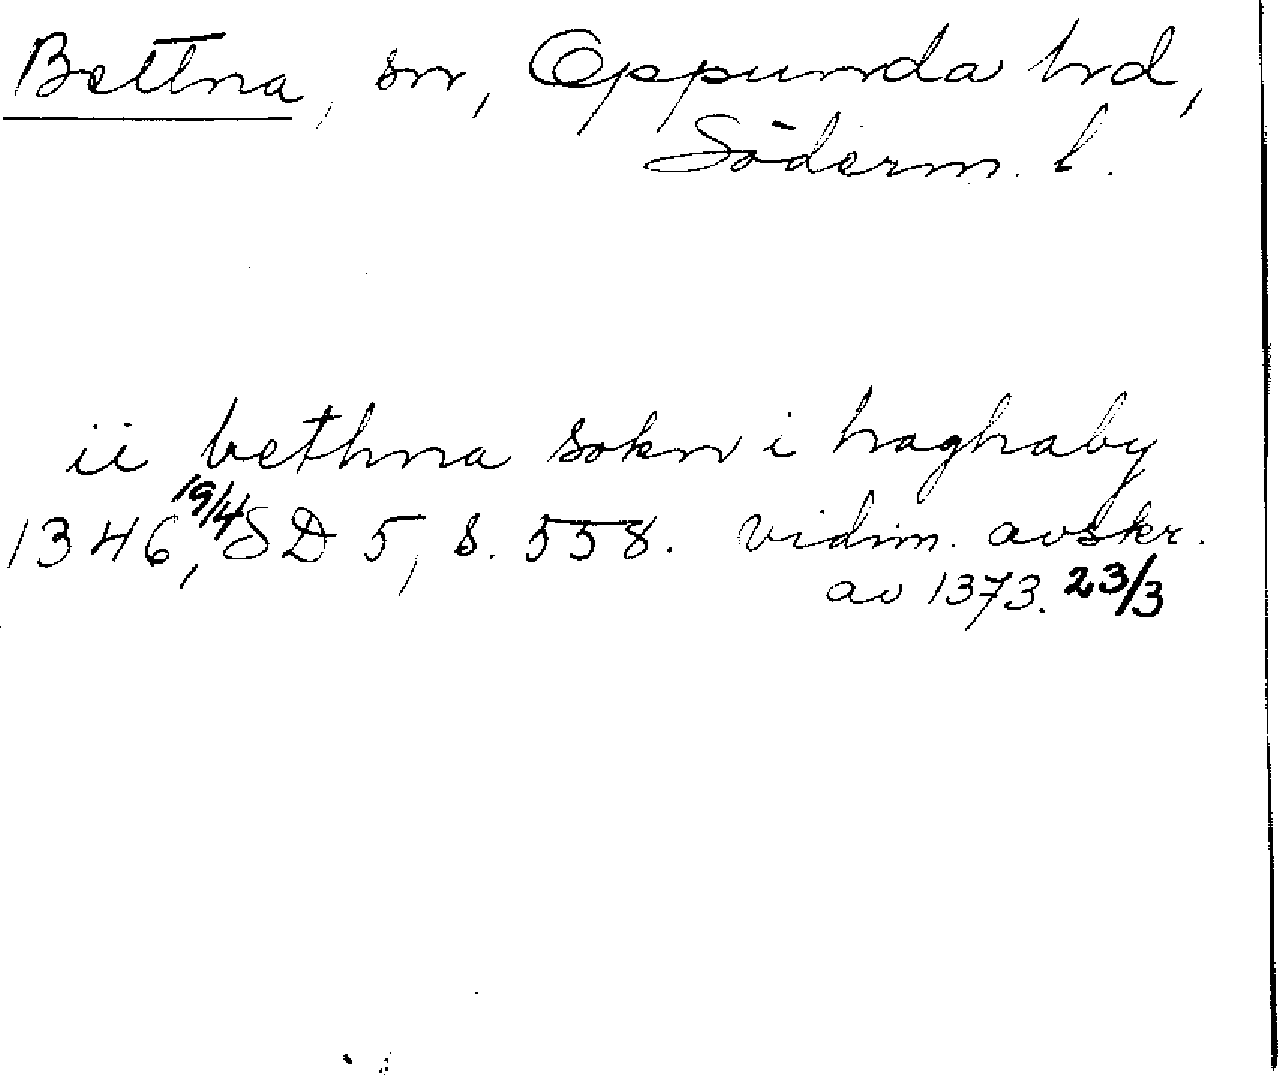 Bettna, sn, Oppunda hd,
Söderm. l.
ii bethna sokn i haghaby
1346, 19/4 SD 5, s. 558. vidim. avskr.
av 1373. 23/3